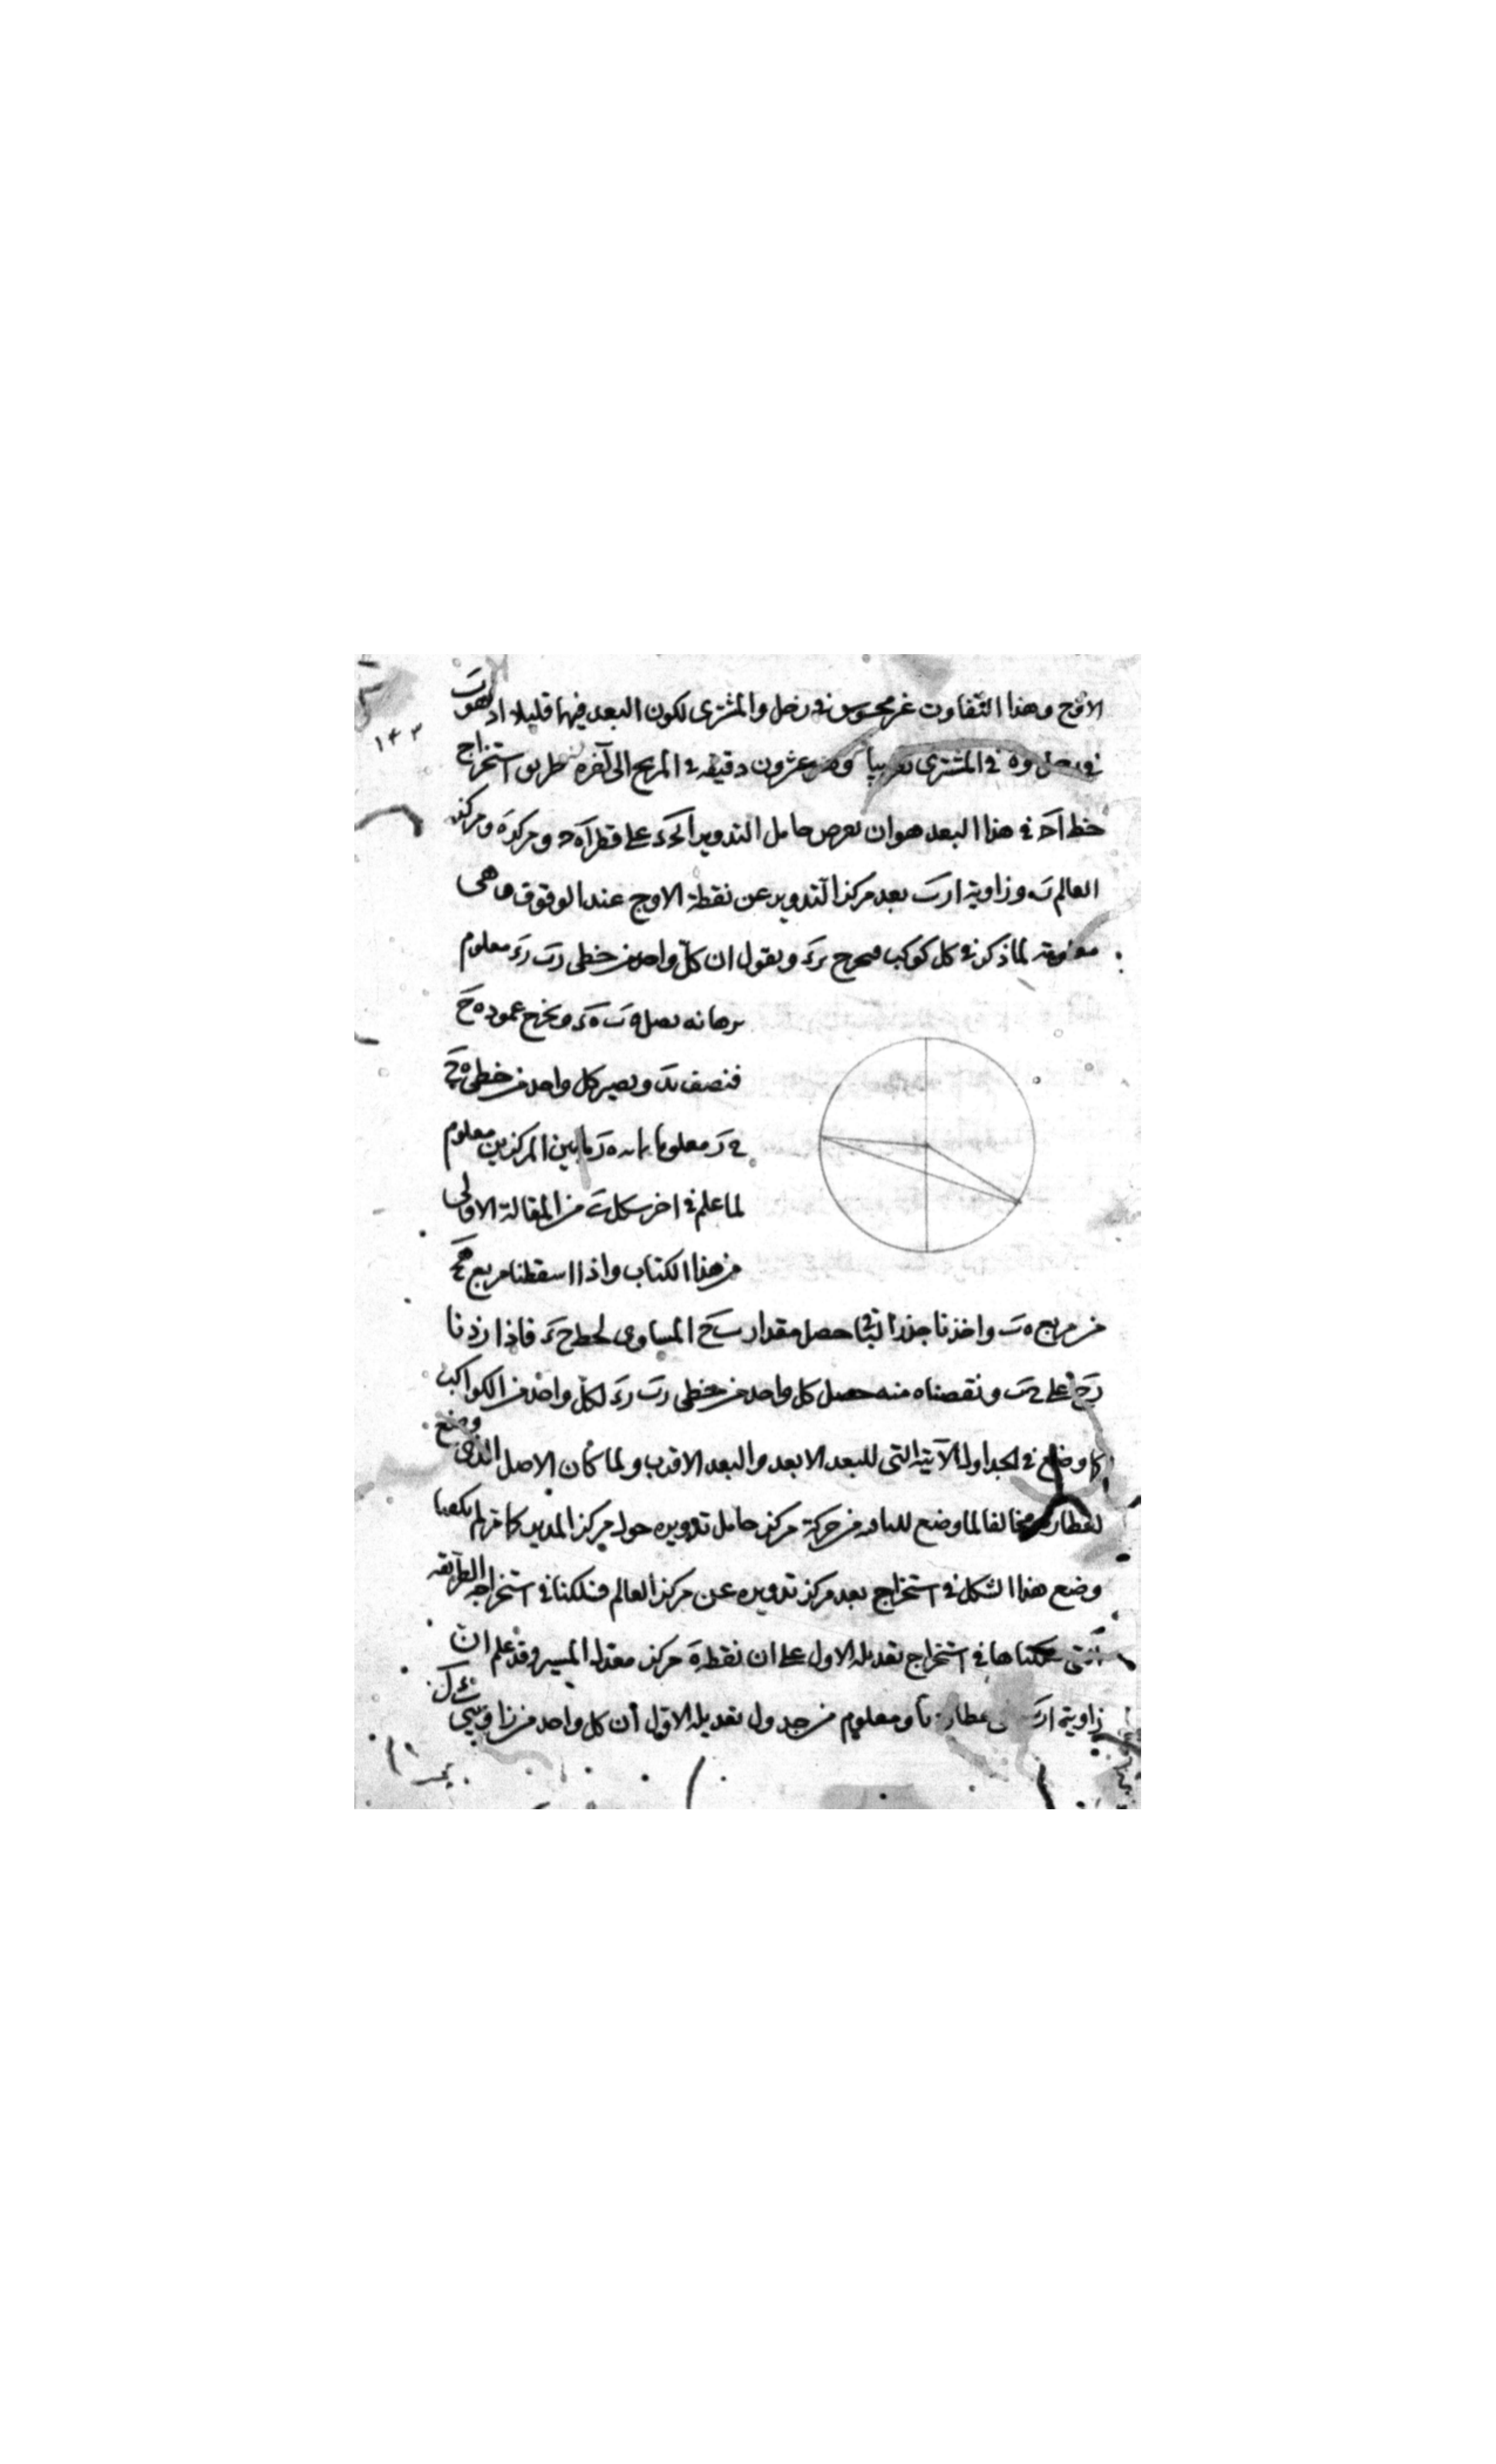 الاوج وهذا التفاوت غير محسوس في زحل والمشترى لكون البعد فيهما قليلا اذ هو ت
١٤٣
في زحل وه في المشترى تقريبا وعشرون دقيقة في المريخ الى آخره طريق استخراج
خط اَحَ في هذا البعد هو ان نعرض حامل التدوير اٮحَدَ على قطر اَهَحَ ومركزه هَ ومركز
العالم رَ وزاوية ارٮَ بعد مركز التدوير عن نقطة الاوج عند الوقوف وهى
معلومة لما ذكر في كل كوكب ونخرج ٮرَدَ ونقول ان كل واحد من خطى رٮَ ردَ معلوم
برهانه نصل هٮَ هدَ ونخرج عمود هحَ
فننصف ٮدَ ويصير كل واحد من خطى هحَ
حرَ معلوما بان هرَ ما بين المركزين معلوم
لما علم في اخر شكل من المقالة الاولى
من هذا الكتاب واذا اسقطنا مربع هحَ
من مربع هٮَ واخذنا جذر الباقى حصل مقدار ٮحَ المساوى لخط حدَ فاذا زدنا
رحَ على حٮَ ونقصناه منه حصل كل واحد من خطى رٮَ ردَ لكل واحد من الكواكب
كما وضع في الجداول الآتية التى للبعد الابعد والبعد الاقرب ولما كان الاصل الذى وضع
لعطارد مخالفا لما وضع للباقية من حركة مركز حامل تدويره حول مركز المدير كما مر لم يكفنا
وضع هذا الشكل في استخراج بعد مركز تدويره عن مركز العالم فسلكنا في استخراجه الطريقة
التى سلكناها في استخراج تعديله الاول على ان نقطة هَ مركز معدل المسير وقد علم ان
زاوية ارٮَ عطارد ومعلوم من جدول تعديله الاول أن كل واحد من زاويتى